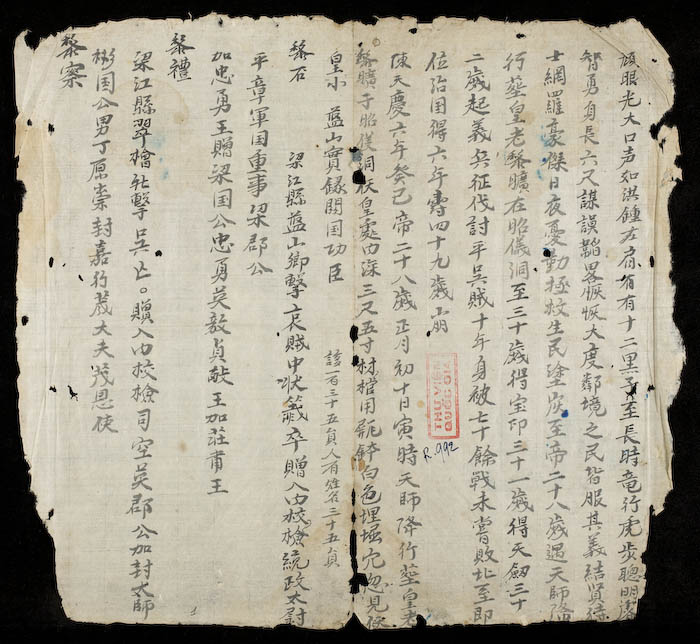 頭眼光大口声如洪鍾左肩有有十二黒子至長時竜行虎步聰明睿
智勇身長六尺謀謨韜畧恢恢大度鄰境之民皆服其義結賢待
士網羅豪傑日夜憂勤拯救生民塗炭至帝二十八歲遇天師降
行塟皇老黎曠在昭儀洞至三十歲得宝印三十一歲得天劔三十
二歲起義兵征伐討平吳賊十年身被七十餘戰未嘗敗北至即
位治国得六年壽四十九歲崩
陳天慶六年癸巳帝二十八歲正月初十日寅時天師降行塟皇老
黎曠于昭儀洞伏皇處由深三尺五寸材棺用 白色埋堀穴忽見
皇小 藍山實録開国功臣 該一百三十五貟人有姓名三十五貟
黎石 梁江縣藍山鄉擊哀賊中状箴卒贈入内校檢統政太尉
平章軍国重事梁郡公
加忠勇王贈梁国公忠勇英毅貞敵王加莊甫王
黎禮
梁江縣翠檜社擊吳亡。贈入内校檢司空英郡公加封太師
彬国公男丁原崇封嘉行大夫茂恩使
黎察
THƯ VIỆN
QUỐC GIA
R.992